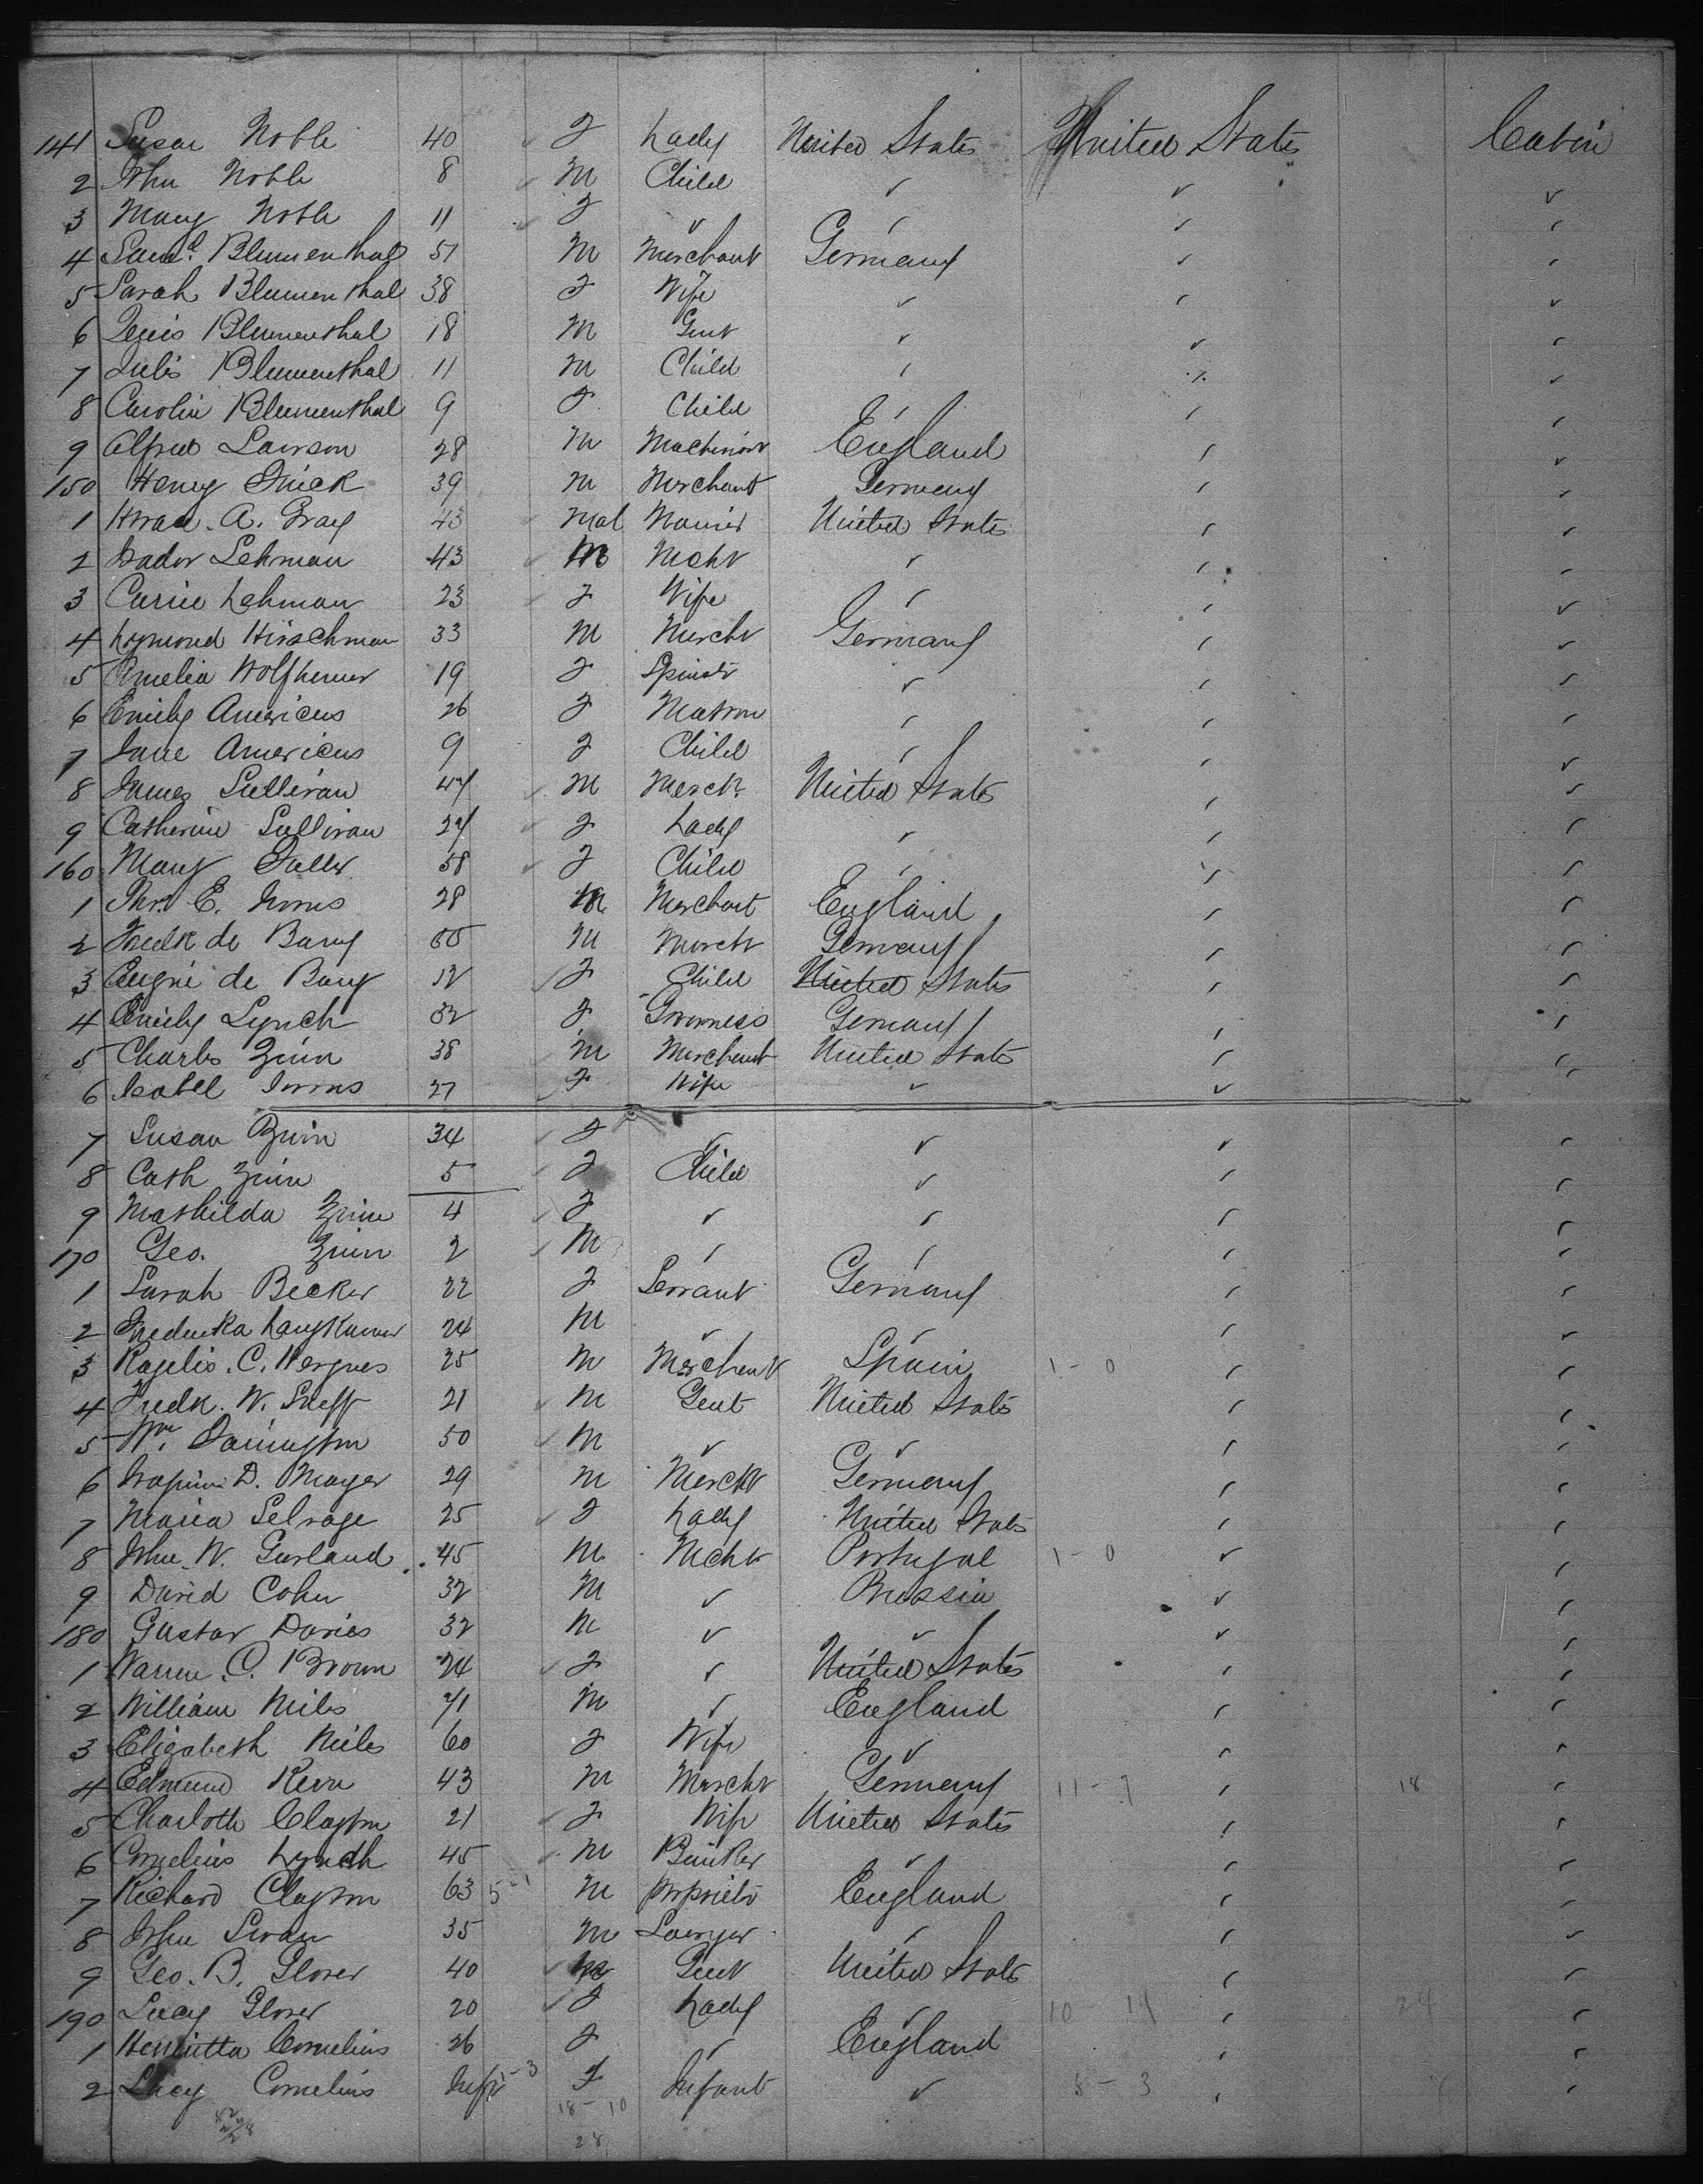 141 Susan Noble 40 ✓ F Lady United States United States Cabin
2 John Noble 8 ✓ M Child ✓ ✓ ✓
3 Mary Noble 11 ✓ F ✓ ✓ ✓ ✓
4 Saml Blumenthal 51 M Merchant Germany ✓ ✓
5 Sarah Blumenthal 38 F Wife ✓ ✓ ✓
6 Louis Blumenthal 18 M Gent ✓ ✓ ✓
7 Julis Blumenthal 11 M Child ✓ ✓ ✓
8 Carolin Blumenthal 9 F Child ✓ ✓ ✓
9 Alfred Lawson 28 M Machinist England ✓ ✓
150 Henry Frick 39 M Merchant Germany ✓ ✓
1 A. Gray 43 ✓ Mal United States ✓ ✓
2 Isador Lehman 43 ✓ M Mcht ✓ ✓ ✓
3 Carrie Lehman 23 ✓ F Wife ✓ ✓ ✓
4 Hirschman 33 M Mercht Germany ✓ ✓
5 Amelia 19 F Spinstr ✓ ✓ ✓
6 Emily Americus 26 F Matron ✓ ✓ ✓
7 Jane Americus 9 F Child ✓ ✓ ✓
8 James Sullivan 47 ✓ M Merch United States ✓ ✓
9 Catherine Sullivan 27 ✓ F Lady ✓ ✓ ✓
160 Mary Fuller 58 ✓ F Child ✓ ✓ ✓
1 Thos. E. Norris 28 M Merchant England ✓ ✓
2 Fredk de Bary 55 M Mercht Germany ✓ ✓
3 Eugnie de Bary 12 ✓ F Child United States ✓ ✓
4 Emily Lynch 32 F Governess Germany ✓ ✓
5 Charles Zinn 38 ✓ M Merchant United States ✓ ✓
6 Isabel 27 ✓ F Wife ✓ ✓
7 Susan Zinn 34 ✓ F ✓ ✓ ✓ ✓
8 Cath Zinn 5 ✓ F Child ✓ ✓ ✓
9 Mathilda Zinn 4 ✓ F ✓ ✓ ✓ ✓
170 Geo. Zinn 2 ✓ M ✓ ✓ ✓ ✓
1 Sarah Becker 22 F Servant Germany ✓ ✓
2 Frederika Langkamer 24 M ✓ ✓ ✓ ✓
3 Rogelio. C. 25 M Merchant Spain 1-0 ✓ ✓
4 Fredk. W. 21 ✓ M Gent United States ✓ ✓
5 Wm. Farington 50 ✓ M ✓ ✓ ✓ ✓
6 D. Mayer 29 M Mercht Germany ✓ ✓
7 Maria Selvage 25 ✓ F Lady United States ✓ ✓
8 John. W. Garland 45 M Mcht Portugal 1-0 ✓ ✓
9 David Cohn 32 M ✓ Prussia ✓ ✓
180 Gustav Davies 32 M ✓ ✓ ✓ ✓
1 Warren. C. Brown 24 ✓ F ✓ United States ✓ ✓
2 William Miles 71 M ✓ England ✓ ✓
3 Elizabeth Miles 60 F Wife ✓ ✓ ✓
4 Edmund Kern 43 M Mercht Germany 11-7 ✓ 18 ✓
5 Charlotte Clayton 21 ✓ F Wife United States ✓ ✓
6 Cornelius Lynch 45 ✓ M Banker ✓ ✓ ✓
7 Richard Clayton 63 5-1 M Proprietr England ✓ ✓
8 John Swan 35 M Lawyer ✓ ✓ ✓
9 Geo. B. Glover 40 ✓ M Gent United States ✓ ✓
190 Lucy Glover 20 ✓ F Lady ✓ 10-14 ✓ 24 ✓
1 Henrietta Cornelius 26 F ✓ England ✓ ✓
2 Lucy Cornelius F Infant ✓ 5-3 ✓ ✓
18-10
28